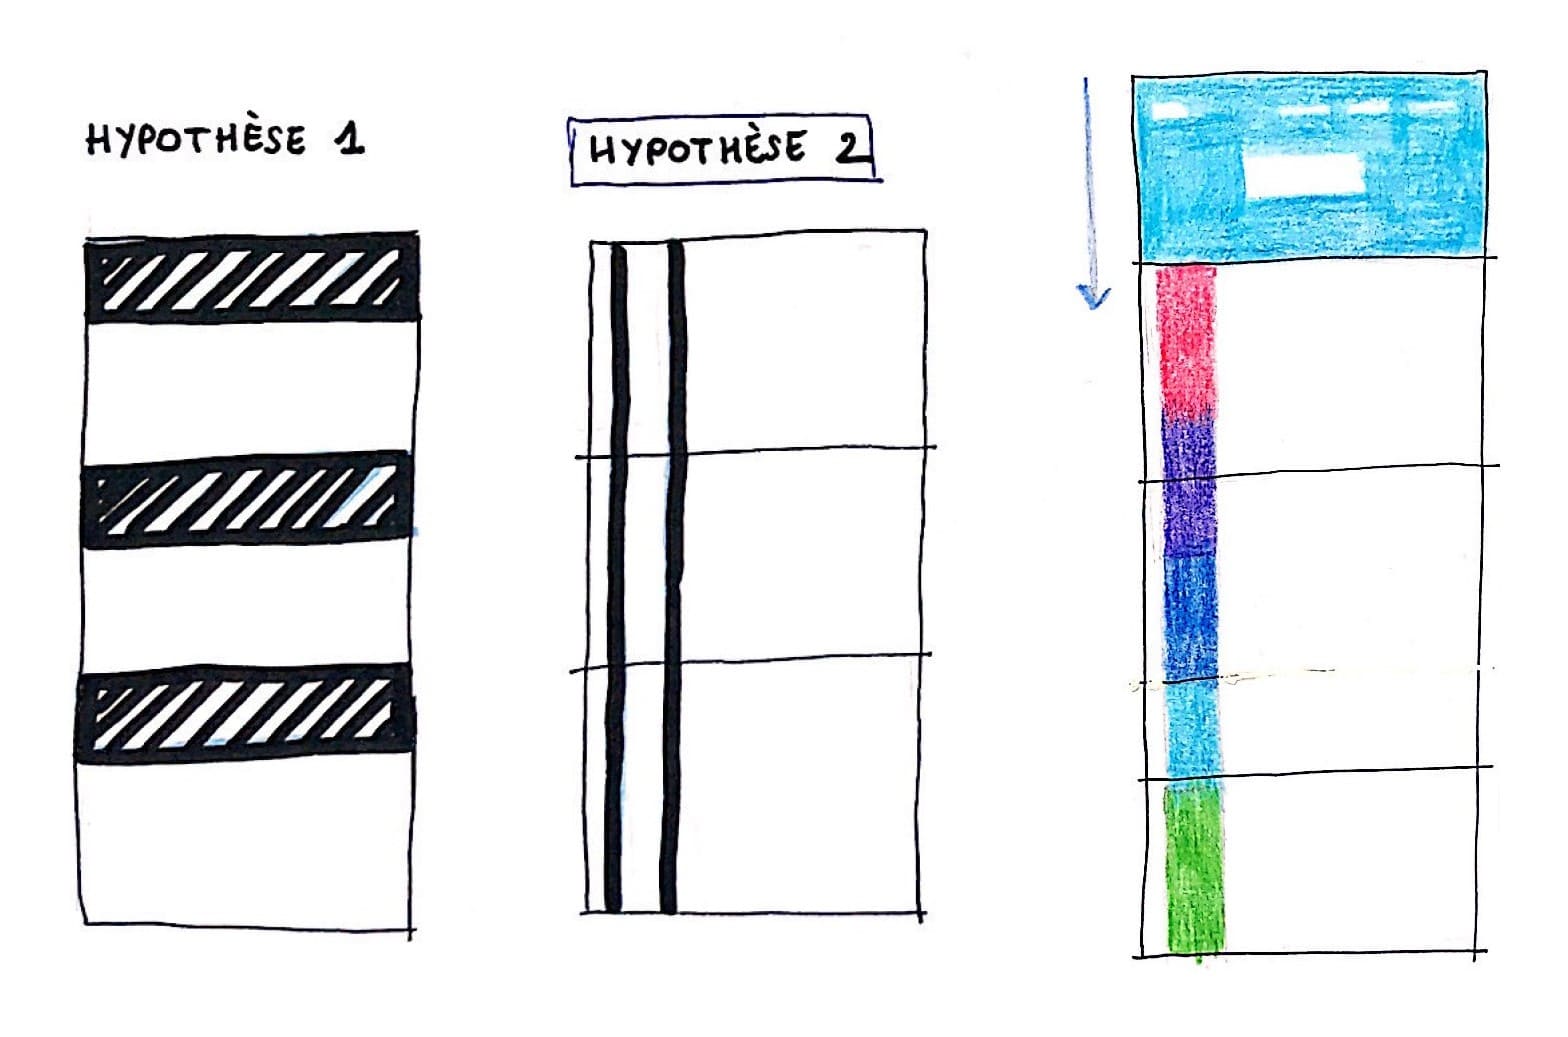 HYPOTHÈSE 1
HYPOTHÈSE 2